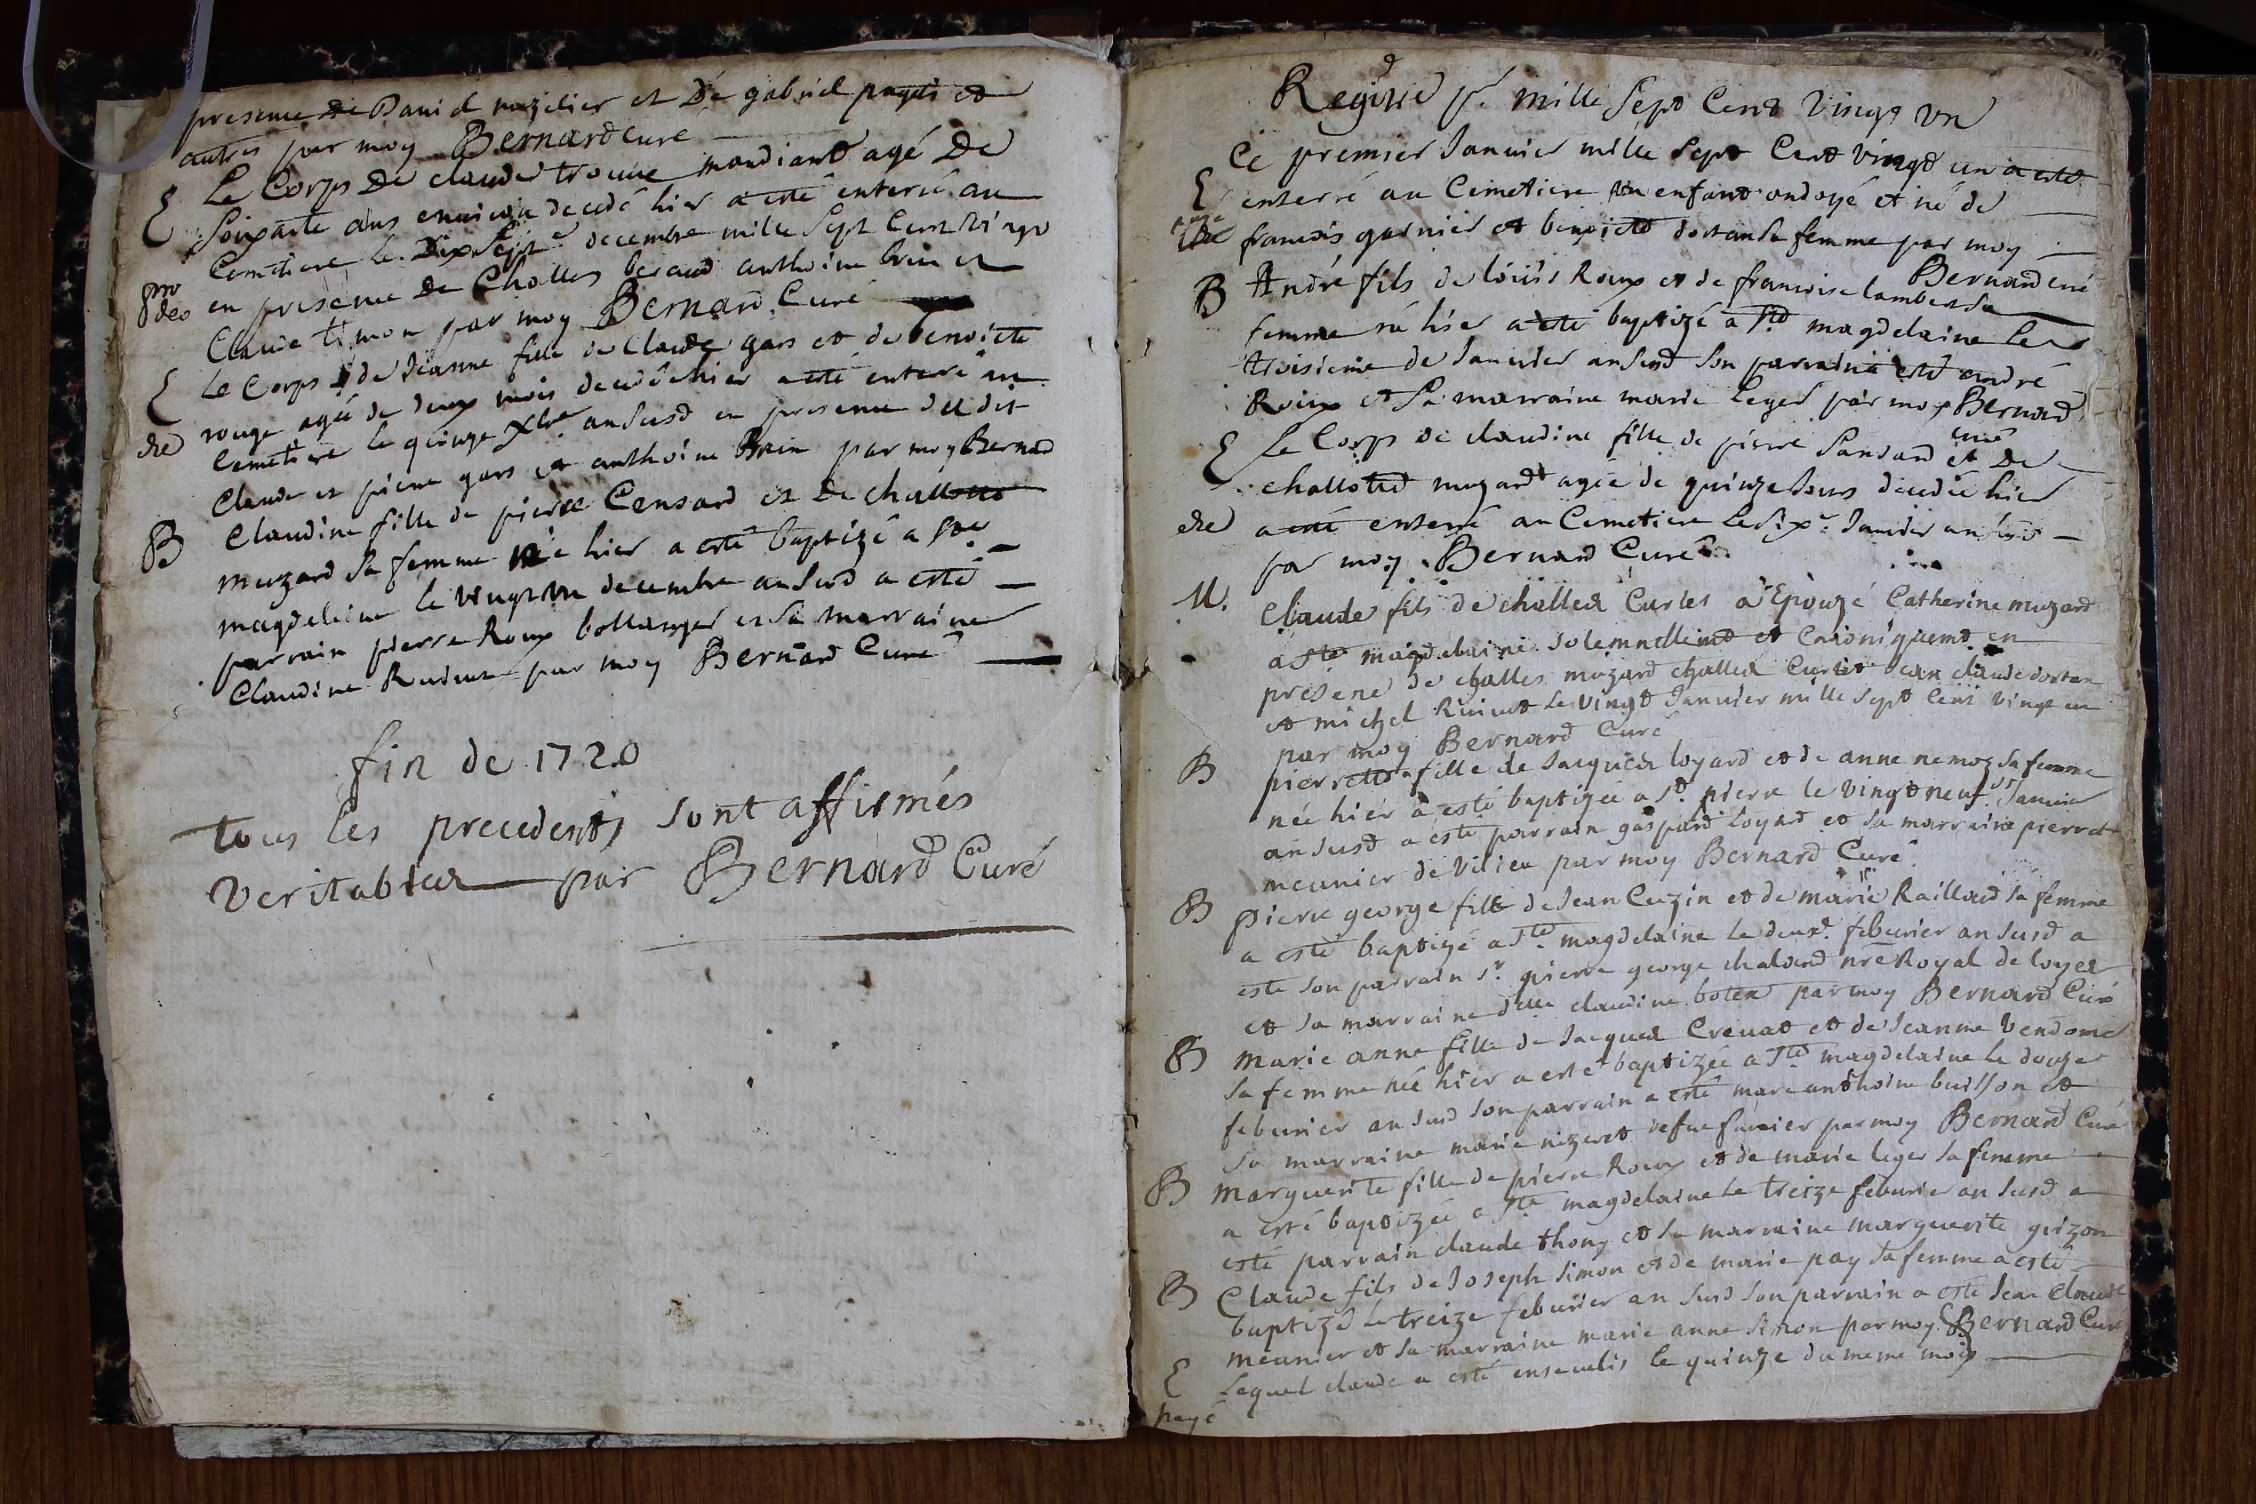 presence de Daniel mazelier et De gabriel pagés et
autres par moy Bernard Curé
E Le Corps De claude trouue mandiant agé De
Soixante ans enuiron decedé hier a esté enterré au
Cemetiere le Dix Sept.e decembre mille Sept Cent Vingt
pro deo en presence De Challes beraud anthoine brin et
Claude timon par moy Bernard Curé
E Le Corps de Jeanne fille de Claude gars et de benoitte
rouge agée de deux mois decedé hier a esté enterré au
Cemetiere le quinze Xbre an Susd en presence du dit
Claude et pierre gars et anthoine Brin par moy Bernard
B Claudine fille de pierre Censard et De challotte
muzard Sa femme née hier a esté baptizé a Ste
magdeleine le vingt un decembre an Susd a esté
parrain pierre Roux bollanger et Sa marraine
Claudine par moy Bernard Curé
fin de 1720
tous les precedents sont affirmés
veritables par Bernard Curé
Regitre pr mille Sept Cent Vingt Un
Ce premier Januier mille Sept Cent Vingt un a esté
E enterré au Cimetiere un enfant ondoyé et né de
francois garnier et benoicte dortan Sa femme par moy
Bernard curé
B André fils de loüis Roux et de francoise lambert Sa
femme né hier a esté baptizé a Ste magdelaine le
troisieme de Januier an Susd Son parrain est andré
Roux et Sa marraine marie leger par moy Bernard
curé
E Le Corps de claudine fille de pierre Sansard et De
challotte muzard agée de quinze Jours decedée hier
a esté enterré au Cemetiere le Six.e Januier an susd
par moy Bernard Curé
M. Claude fils de challes Curtet a Epouzé Catherine muzard
a Ste magdelaine Solemnellemt et Canoniquemt en
presence de challes muzard challes Curtet Jean claude dortan
et michel Riuiret le Vingt Januier mille Sept Cent Vingt un
par moy Bernard Curé
B pierrette fille de Jacques loyard et de anne nemoz Sa femme
née hier a esté baptizée a St pierre le Vingt neuf Januier
an susd a esté parrain gaspard loyard et Sa marraine pierrette
meunier de Vilieu par moy Bernard Curé
B pierre george fils de Jean Cuzin et de marie Raillard Sa femme
a esté baptizé a Ste magdelaine le deux.e feburier an susd a
esté son parrain Sr pierre george chaland nre Royal de loyes
et Sa marraine dlle claudine botex par moy Bernard Curé
B marie anne fille de Jacques Creuat et de Jeanne Vendome
Sa femme née hier a esté baptizée a Ste magdelaine le douze
feburier an susd Son parrain a esté marc anthoine buisson et
Sa marraine marie nizeret par moy Bernard Curé
B marguerite fille de pierre Roux et de marie leger Sa femme
a esté baptizée a Ste magdelaine le treize feburier an Susd a
esté parrain claude thony et Sa marraine marguerite guizon
B Claude fils de Joseph Simon et de marie pay Sa femme a esté
baptizé le treize feburier an Susd Son parrain a esté Jean Claude
meunier et Sa marraine marie anne Simon par moy Bernard Curé
E Lequel claude a esté enseuelis le quinze du meme mois
payé